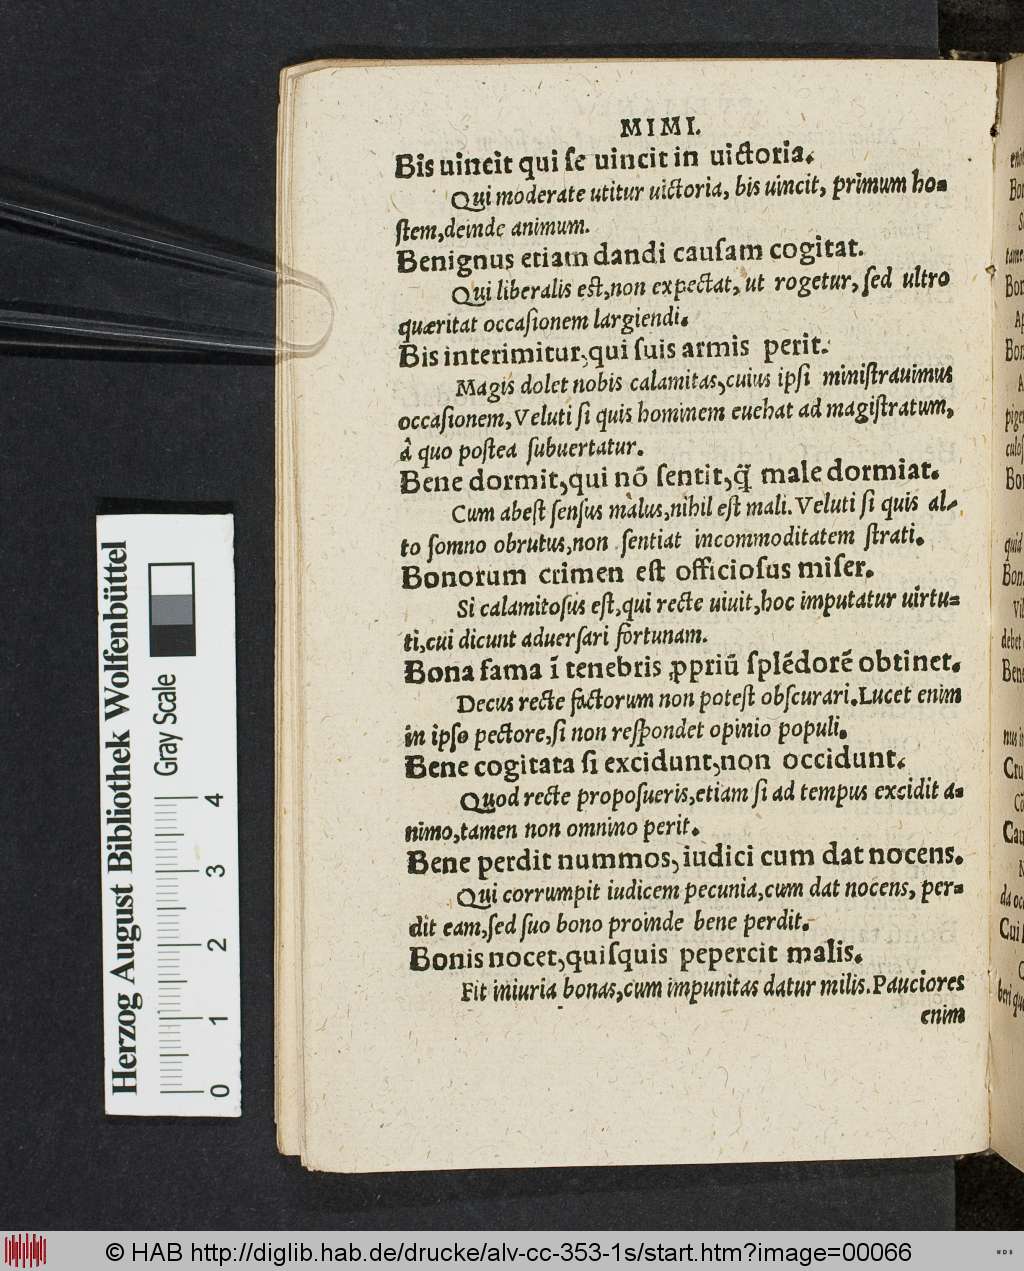 MIMI.
Bis uincit qui ſe uincit in uictoria.
Qui moderate utitur uictoria, bis uincit, primum ho=
ſtem, deinde animum.
Benignus etiam dandi cauſam cogitat.
Qui liberalis eſt, non expectat, ut rogetur, ſed ultro
quæritat occaſionem largiendi.
Bis interimitur, qui ſuis armis perit.
Magis dolet nobis calamitas, cuius ipſi miniſtrauimus
occaſionem, Veluti ſi quis hominem euehat ad magiſtratum,
à quo poſtea ſubuertatur.
Bene dormit, qui nõ ſentit, q̃ male dormiat.
Cum abeſt ſenſus malus, nihil eſt mali. Veluti ſi quis al-
to ſomno obrutus, non ſentiat incommoditatem ſtrati.
Bonorum crimen eſt officioſus miſer.
Si calamitoſus eſt, qui recte uiuit, hoc imputatur uirtu=
ti, cui dicunt aduerſari fortunam.
Bona fama ĩ tenebris ꝓpriũ ſplẽdorẽ obtinet.
Decus recte factorum non poteſt obſcurari. Lucet enim
in ipſo pectore, ſi non reſpondet opinio populi.
Bene cogitata ſi excidunt, non occidunt.
Quod recte propoſueris, etiam ſi ad tempus excidit a=
nimo, tamen non omnino perit.
Bene perdit nummos, iudici cum dat nocens.
Qui corrumpit iudicem pecunia, cum dat nocens, per=
dit eam, ſed ſuo bono proinde bene perdit.
Bonis nocet, quiſquis pepercit malis.
Fit iniuria bonas, cum impunitas datur milis. Pauciores
enim
Herzog August Bibliothek Wolfenbüttel
Gray Scale
0 1 2 3 4
© HAB http://diglib.hab.de/drucke/alv-cc-353-1s/start.htm?image=00066